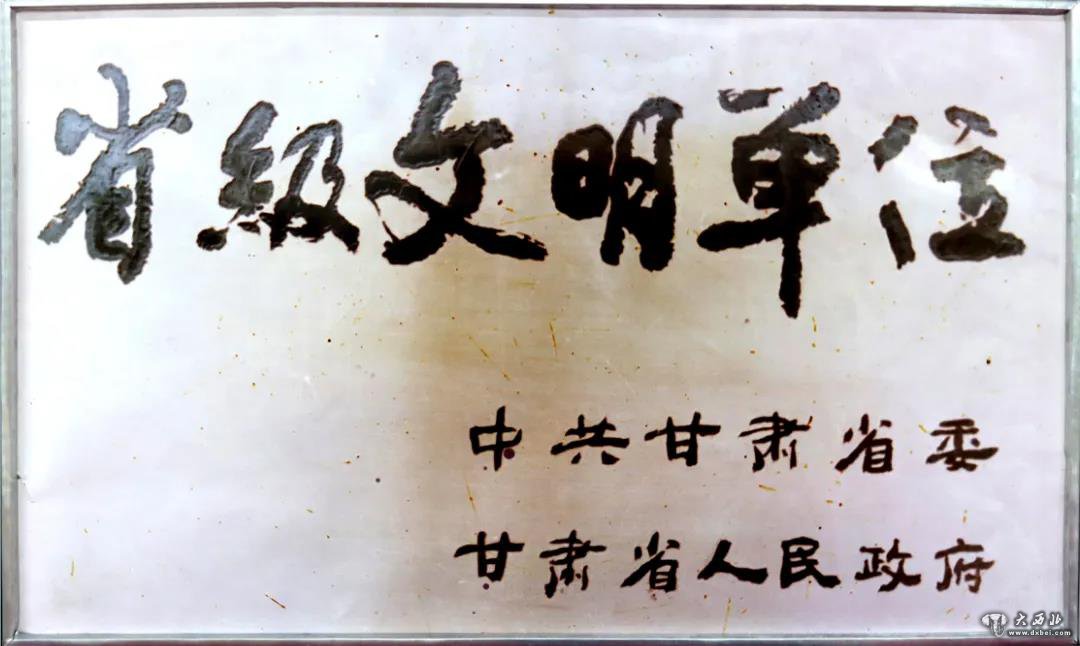 省级文明单位
中共甘肃省委
甘肃省人民政府
大西北
www.dxbei.com